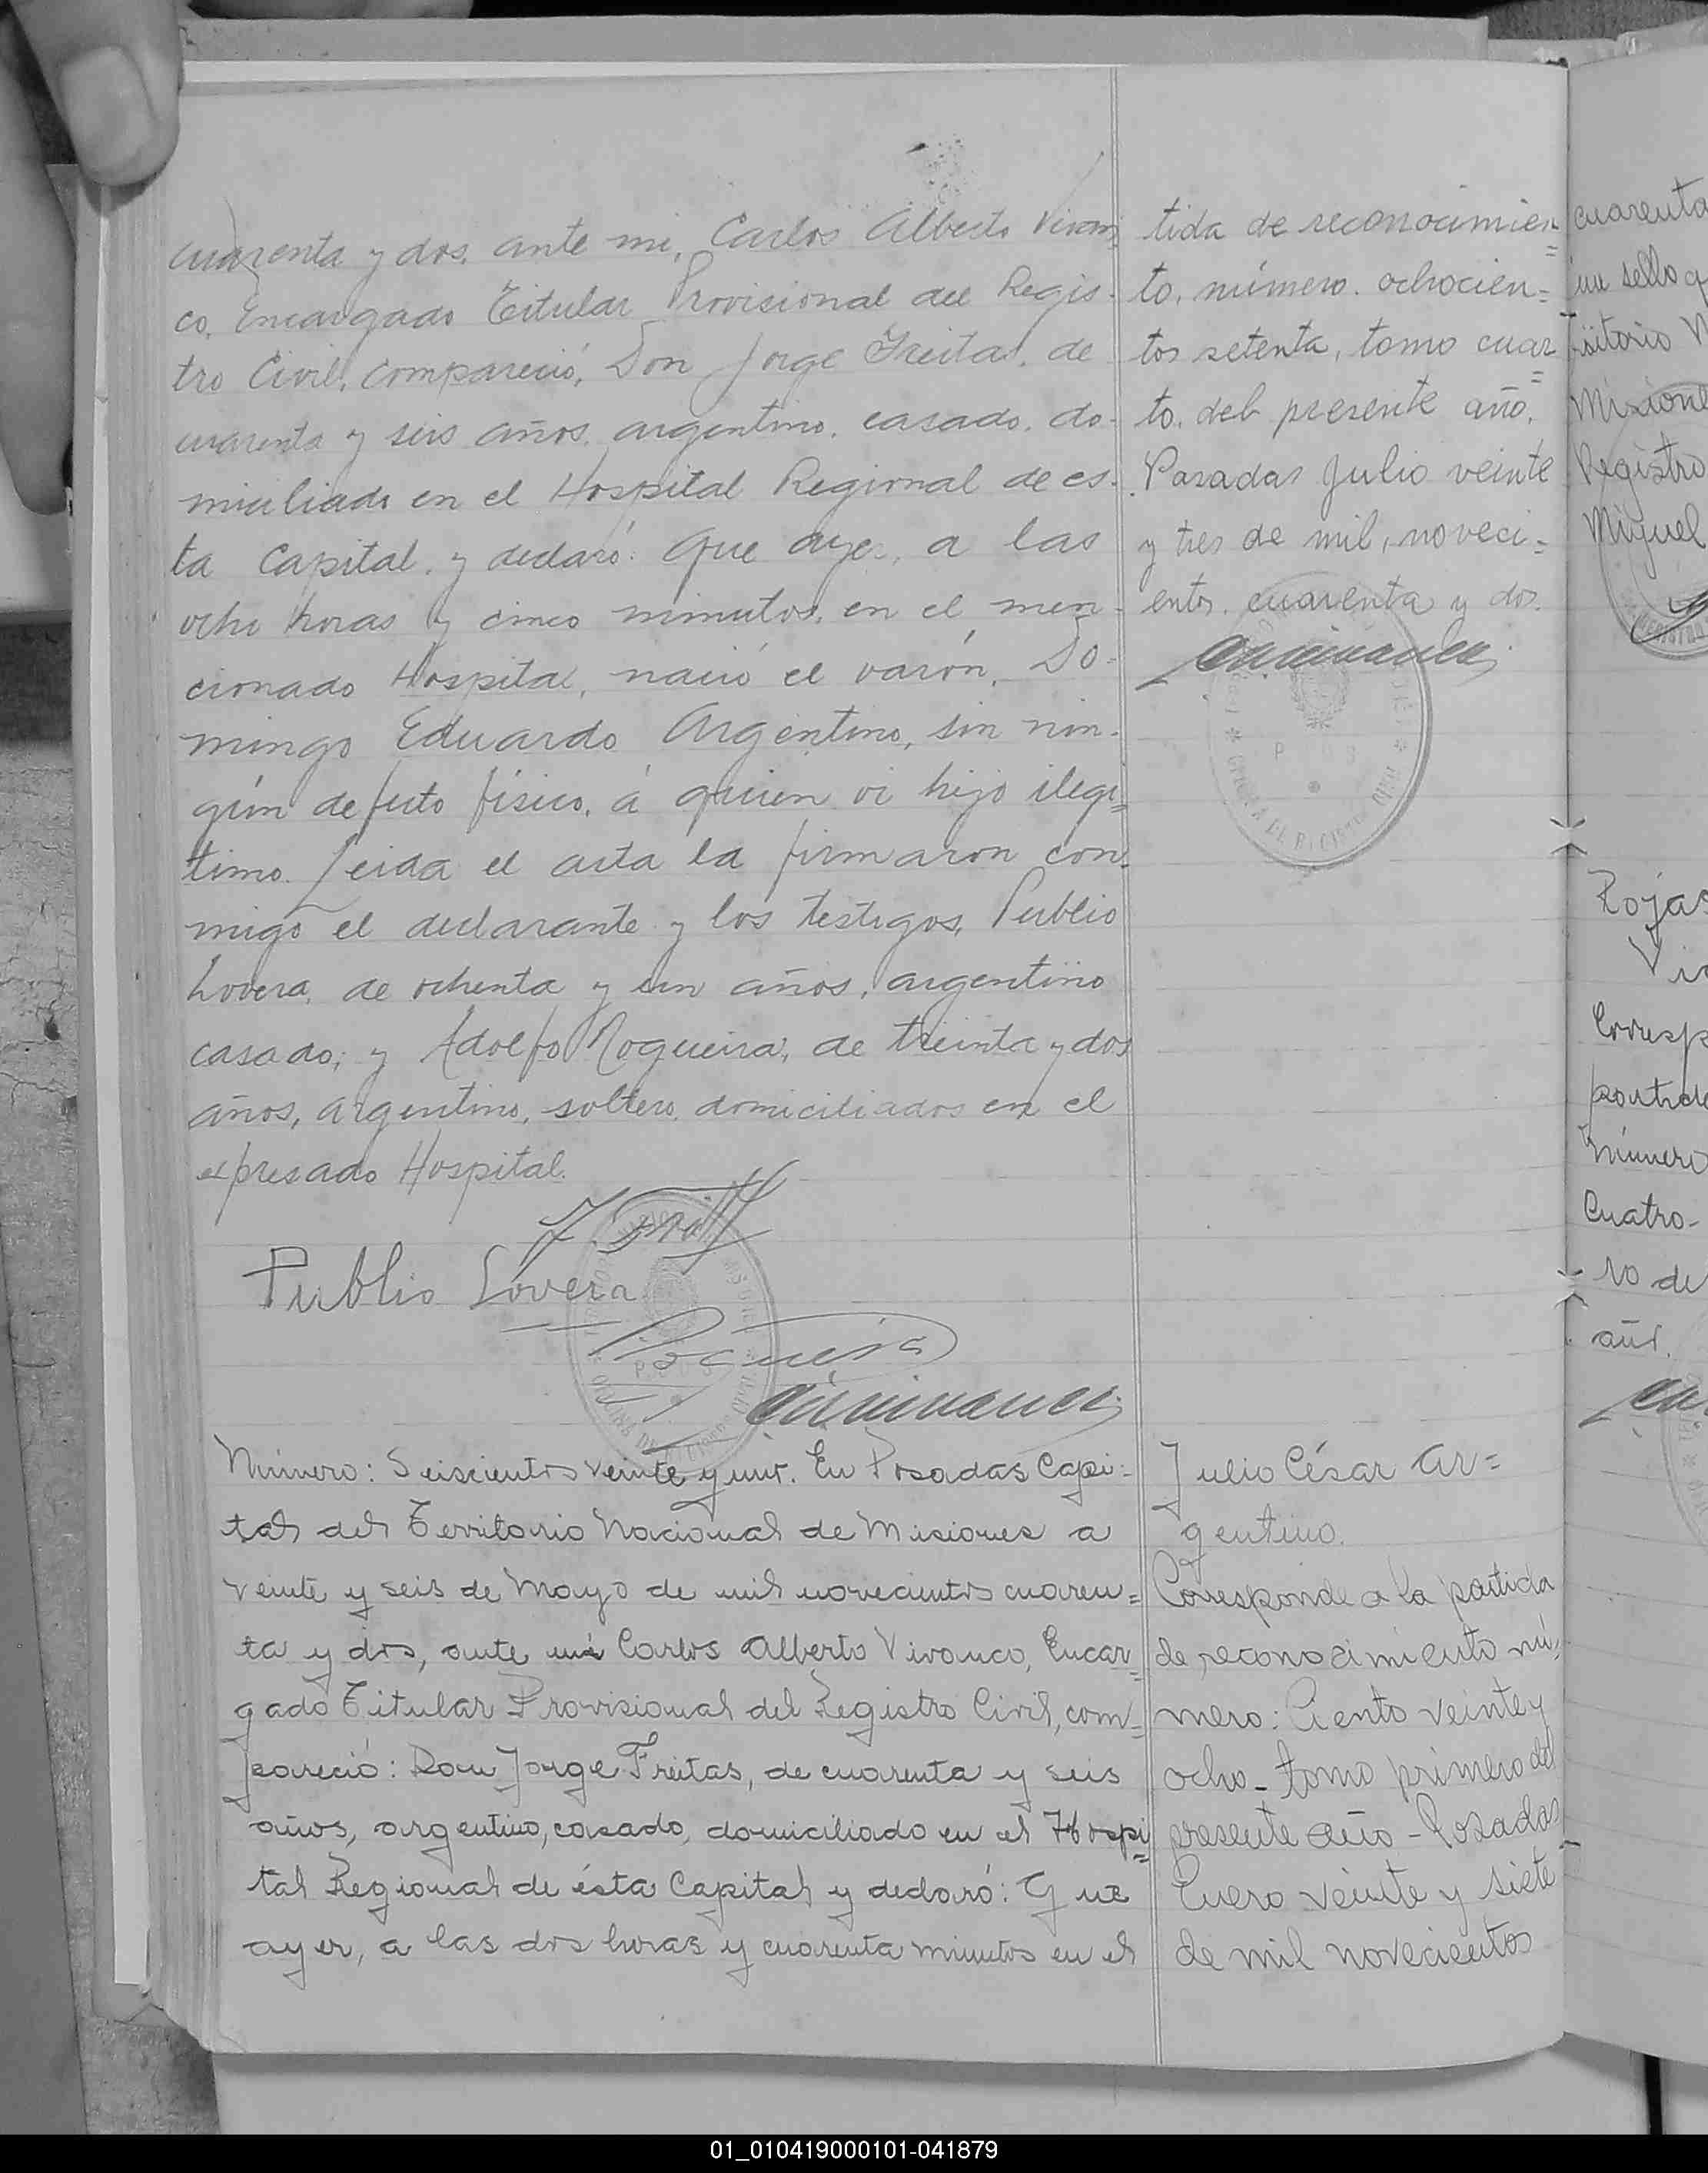 cuarenta y dos, ante mi, Carlos Alberto Vivan
co, Encargado Titular Provisional del Regis-
tro Civil, compareció, Don Jorge Freitas, de
cuarenta y seis años, argentino, casado, do-
miciliado en el Hospital Regional de es-
ta Capital, y declaró: Que ayer, a las
ocho horas y cinco minutos, en el men-
cionado Hospital, nació el varón, Do-
mingo Eduardo Argentino, sin nin-
gún defecto físico, á quien vi hijo ilegí=
timo. Leida el acta la firmaron con-
migo el declarante y los testigos, Publio
Lovera, de ochenta y un años, argentino
casado; y Adolfo Nogueira, de treinta y dos
años, argentino, soltero, domiciliados en el
expresado Hospital.
Publio Lovera
tida de reconocimien=
to, número. ochocien=
tos setenta, tomo cuar=
to, del presente año.
Posadas Julio veinte
y tres de mil, noveci=
entos. cuarenta y dos.
Número: Seiscientos veinte y uno. En Posadas Capi-
tal del Territorio Nacional de Misiones a
veinte y seis de Mayo de mil novecientos cuaren=
ta y dos, ante mi Carlos Alberto Vivanco, Encar=
gado Titular Provisional del Registro Civil, com=
pareció: Don Jorge Freitas, de cuarenta y seis
años, argentino, casado, domiciliado en el Hospi=
tal Regional de ésta Capital y declaró: Que
ayer, a las dos horas y cuarenta minutos en el
Julio César Ar=
gentino.
Corresponde a la partida
de reconocimiento nú-
mero: Ciento veinte y
ocho - tomo primero del
presente año - Posadas
Enero veinte y siete
de mil novecientos
cuarenta
un sello q
Misione
Registro
Miguel
Rojas
Vi
Corresp
partida
número
Cuatro-
ro de
año.
01_010419000101-041879